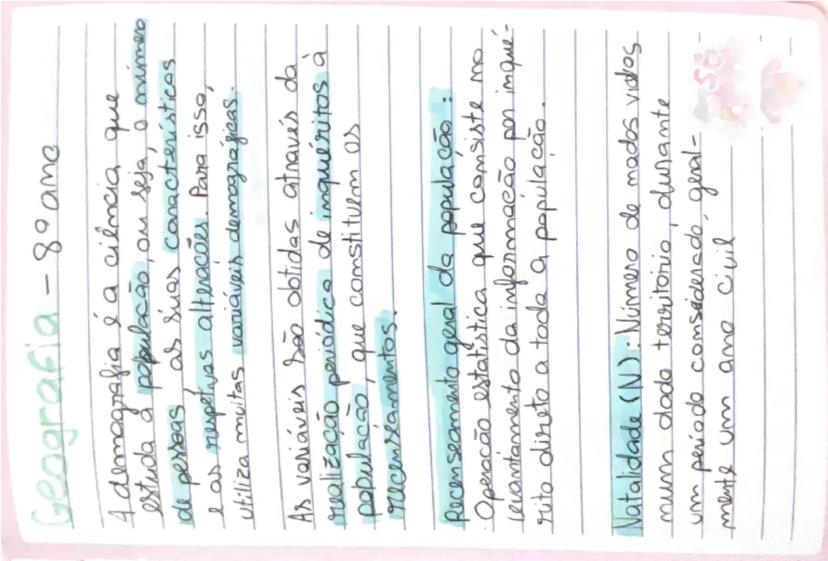 Geografia - 8º ano
A demografia é a ciência que
estuda a população, ou seja, o número
de pessoas, as suas características
e as respetivas alterações. Para isso,
utiliza muitas variáveis demográficas.
As variáveis são obtidas através da
realização periódica de inquéritos à
população, que constituem os
recenseamentos.
Recenseamento geral da população:
Operação estatística que consiste no
levantamento da informação por inqué-
rito direto a toda a população.
Natalidade (N): Número de nados vivos
num dado território, durante
um período considerado, geral-
mente um ano civil